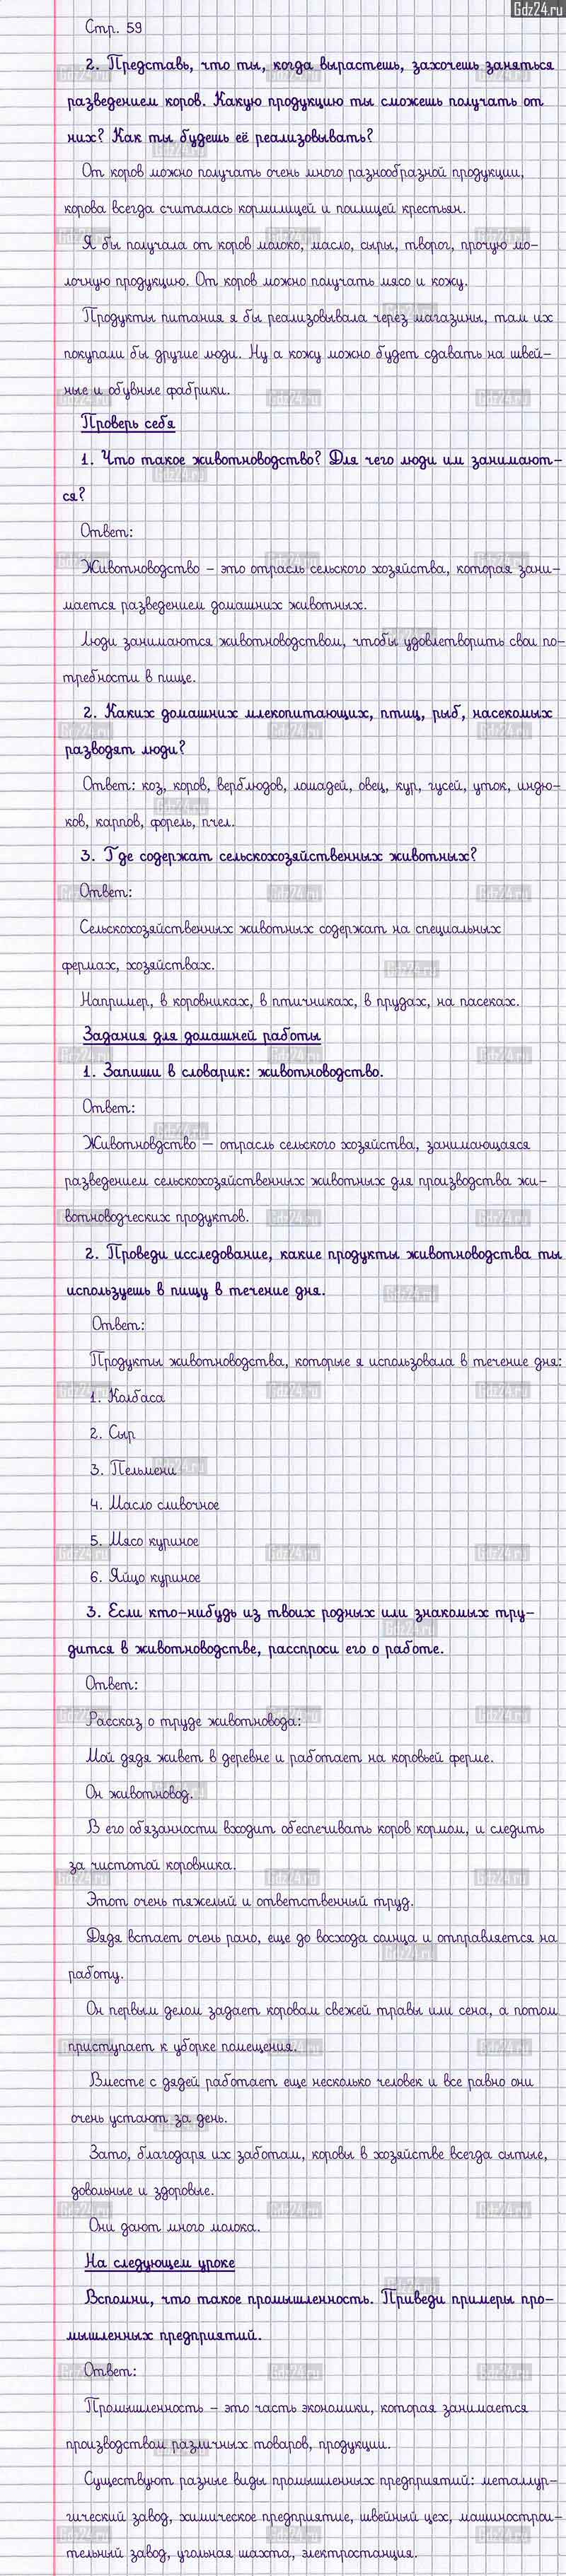 Gdz24.ru
Стр. 59
2. Представь, что ты, когда вырастешь, захочешь заняться
разведением коров. Какую продукцию ты сможешь получать от
них? Как ты будешь её реализовывать?
От коров можно получать очень много разнообразной продукции,
корова всегда считалась кормилицей и поилицей крестьян.
Я бы получала от коров молоко, масло, сыры, творог, прочую мо-
лочную продукцию. От коров можно получать мясо и кожу.
Продукты питания я бы реализовывала через магазины, там их
покупали бы другие люди. Ну а кожу можно будет сдавать на швей-
ные и обувные фабрики.
Проверь себя
1. Что такое животноводство? Для чего люди им занимают-
ся?
Ответ:
Животноводство – это отрасль сельского хозяйства, которая зани-
мается разведением домашних животных.
Люди занимаются животноводством, чтобы удовлетворить свои по-
требности в пище.
2. Каких домашних млекопитающих, птиц, рыб, насекомых
разводят люди?
Ответ: коз, коров, верблюдов, лошадей, овец, кур, гусей, уток, индю-
ков, карпов, форель, пчел.
3. Где содержат сельскохозяйственных животных?
Ответ:
Сельскохозяйственных животных содержат на специальных
фермах, хозяйствах.
Например, в коровниках, в птичниках, в прудах, на пасеках.
Задания для домашней работы
1. Запиши в словарик: животноводство.
Ответ:
Животновдство — отрасль сельского хозяйства, занимающаяся
разведением сельскохозяйственных животных для производства жи-
вотноводческих продуктов.
2. Проведи исследование, какие продукты животноводства ты
используешь в пищу в течение дня.
Ответ:
Продукты животноводства, которые я использовала в течение дня:
1. Колбаса
2. Сыр
3. Пельмени
4. Масло сливочное
5. Мясо куриное
6. Яйцо куриное
3. Если кто-нибудь из твоих родных или знакомых тру-
дится в животноводстве, расспроси его о работе.
Ответ:
Рассказ о труде животновода:
Мой дядя живет в деревне и работает на коровьей ферме.
Он животновод.
В его обязанности входит обеспечивать коров кормом, и следить
за чистотой коровника.
Этот очень тяжелый и ответственный труд.
Дядя встает очень рано, еще до восхода солнца и отправляется на
работу.
Он первым делом задает коровам свежей травы или сена, а потом
приступает к уборке помещения.
Вместе с дядей работает еще несколько человек и все равно они
очень устают за день.
Зато, благодаря их заботам, коровы в хозяйстве всегда сытые,
довольные и здоровые.
Они дают много молока.
На следующем уроке
Вспомни, что такое промышленность. Приведи примеры про-
мышленных предприятий.
Ответ:
Промышленность – это часть экономики, которая занимается
производством различных товаров, продукции.
Существуют разные виды промышленных предприятий: металлур-
гический завод, химическое предприятие, швейный цех, машинострои-
тельный завод, угольная шахта, электростанция.